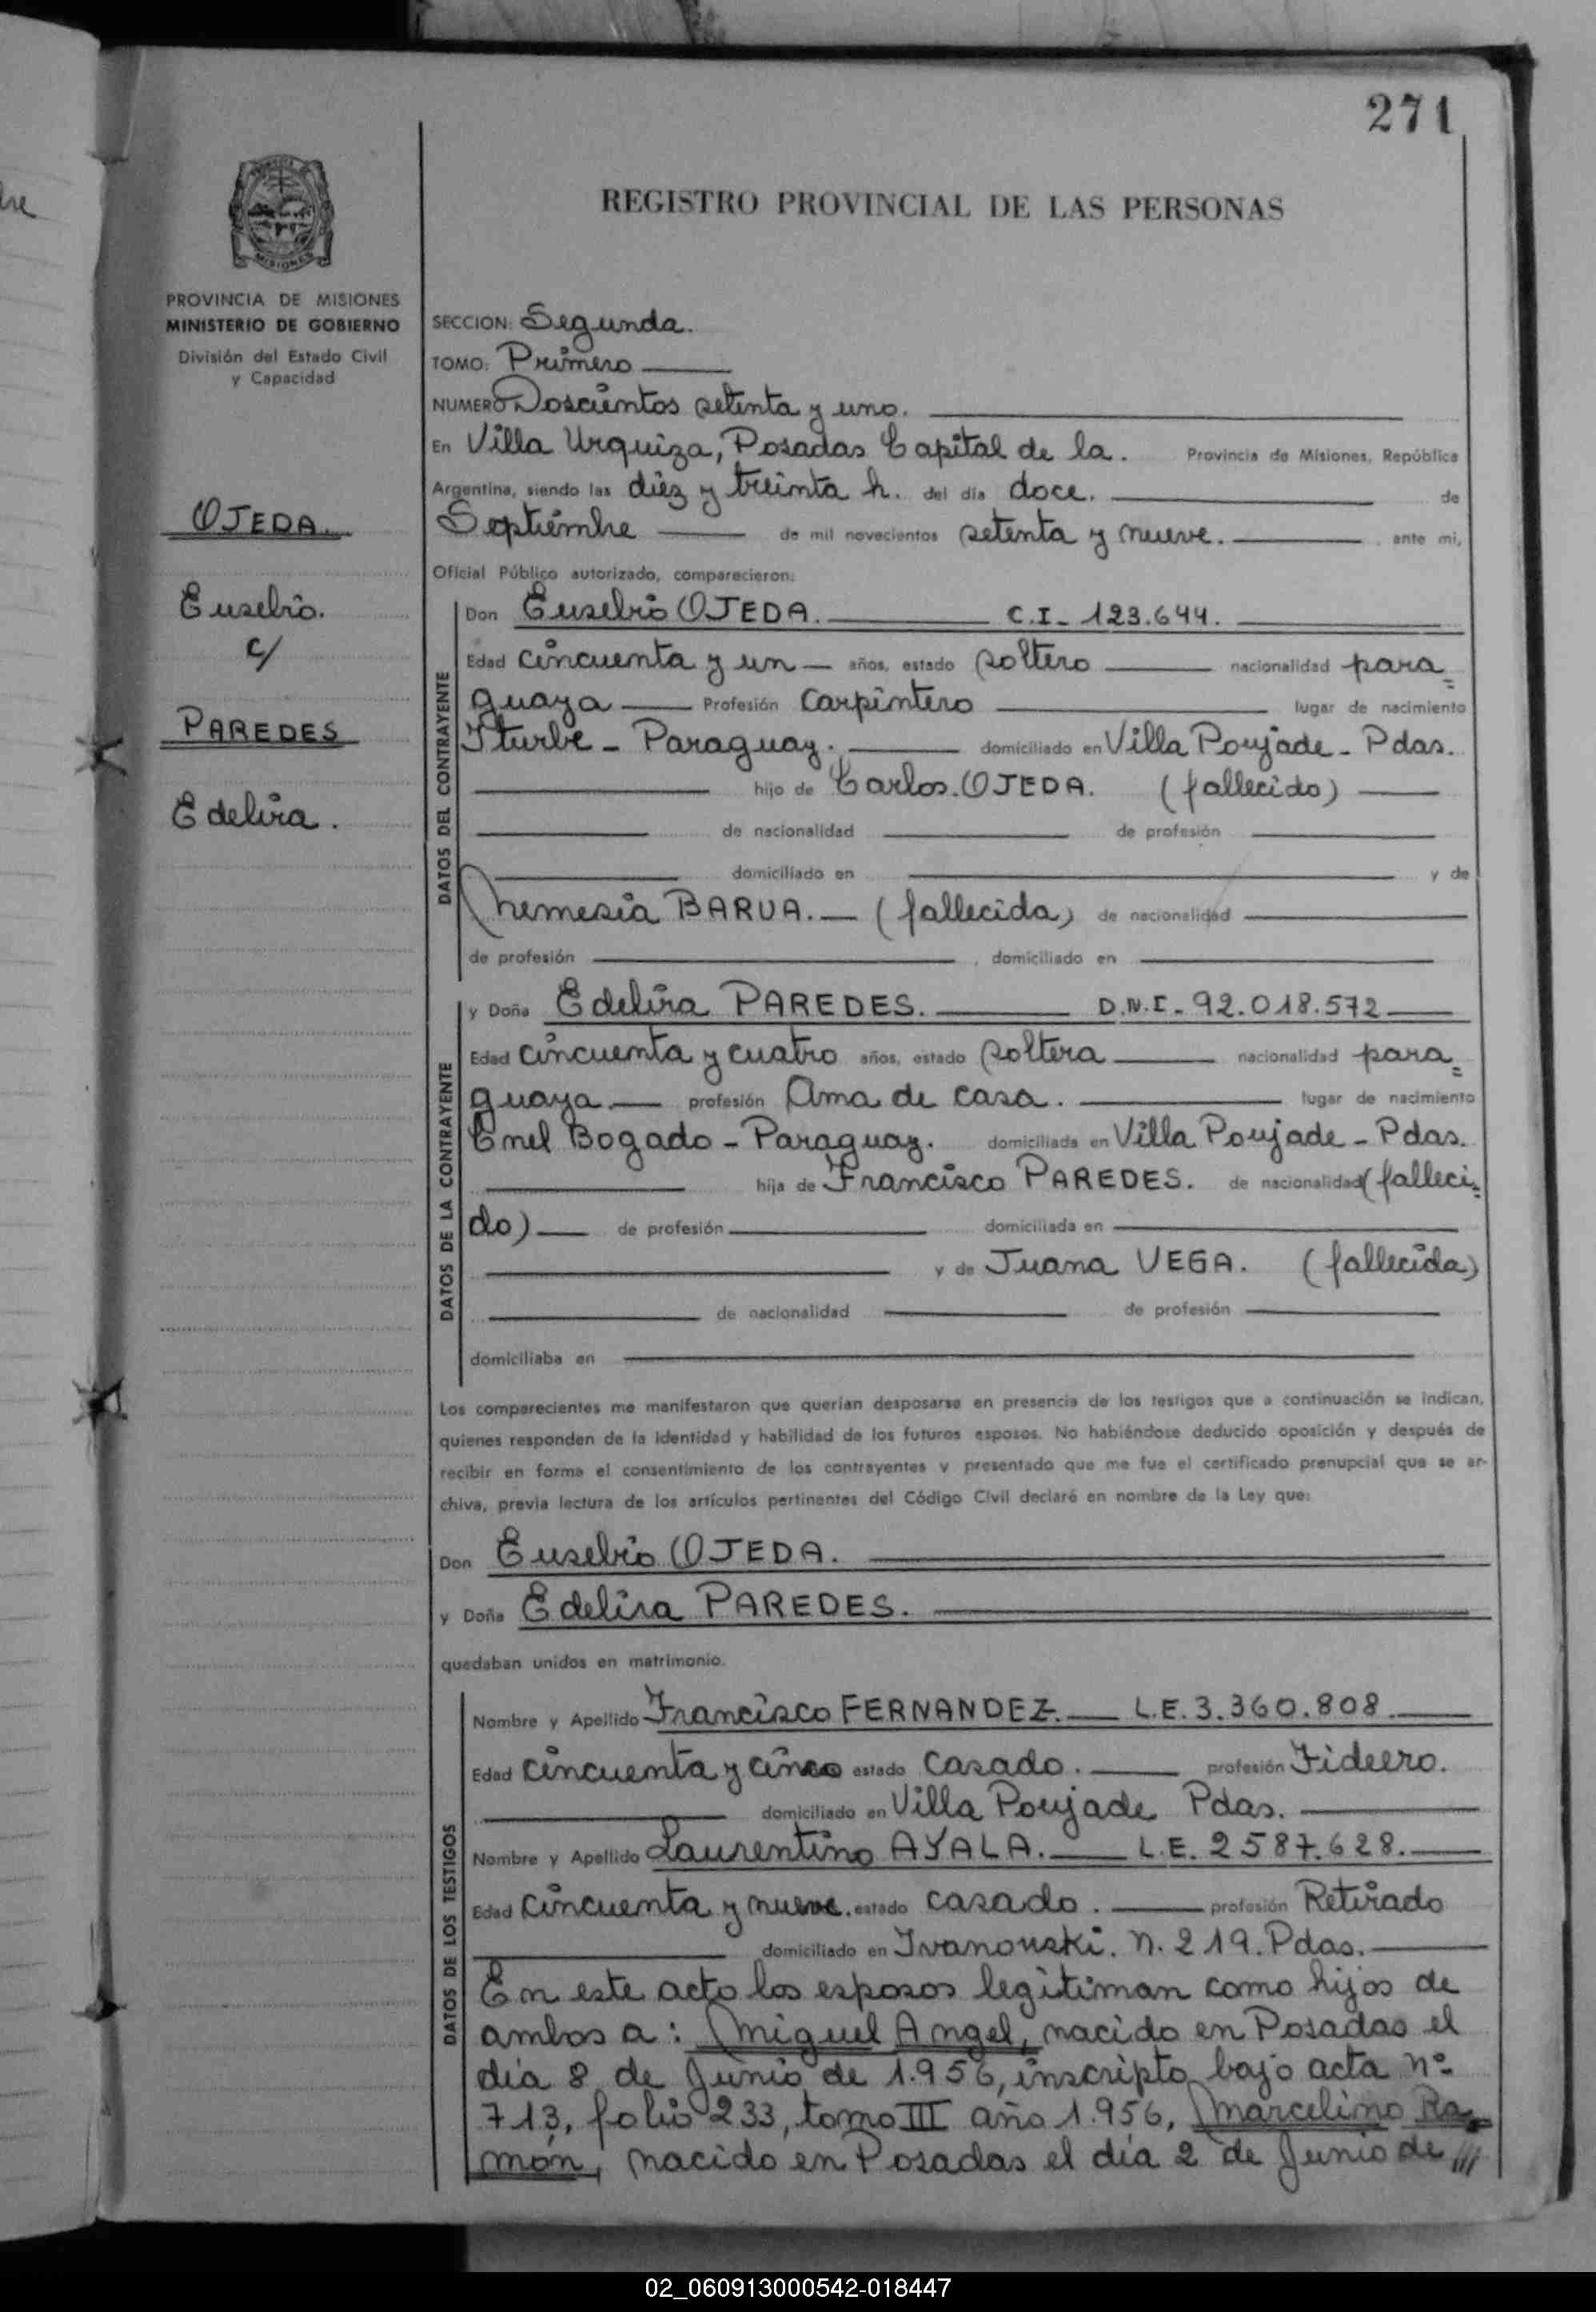 271
REGISTRO PROVINCIAL DE LAS PERSONAS
MISIONES
PROVINCIA DE MISIONES
MINISTERIO DE GOBIERNO
División del Estado Civil
y Capacidad
OJEDA
Eusebio.
c/
PAREDES
Edelira.
SECCION: Segunda.
TOMO: Primero
NUMERO Doscientos setenta y uno.
En Villa Urquiza, Posadas Capital de la. Provincia de Misiones, República
Argentina, siendo las diez y treinta h. del día doce. de
Septiembre de mil novecientos setenta y nueve. ante mi,
Oficial Público autorizado, comparecieron:
DATOS DEL CONTRAYENTE
Don Eusebio OJEDA. C.I- 123.644.
Edad cincuenta y un años, estado soltero nacionalidad para=
guaya Profesión Carpintero lugar de nacimiento
Iturbe - Paraguay. domiciliado en Villa Poujade - Pdas.
hijo de Carlos. OJEDA. (fallecido)
de nacionalidad de profesión
domiciliado en y de
Nemesia BARUA. (fallecida) de nacionalidad
de profesión , domiciliado en
DATOS DE LA CONTRAYENTE
y Doña Edelira PAREDES. D.N.I- 92.018.572
Edad cincuenta y cuatro años, estado soltera nacionalidad para=
guaya profesión Ama de casa. lugar de nacimiento
Cnel Bogado - Paraguay. domiciliada en Villa Poujade - Pdas.
hija de Francisco PAREDES. de nacionalidad (falleci=
do) de profesión domiciliada en
y de Juana VEGA. (fallecida)
de nacionalidad de profesión
domiciliaba en
Los comparecientes me manifestaron que querían desposarse en presencia de los testigos que a continuación se indican,
quienes responden de la identidad y habilidad de los futuros esposos. No habiéndose deducido oposición y después de
recibir en forma el consentimiento de los contrayentes y presentado que me fue el certificado prenupcial que se ar-
chiva, previa lectura de los artículos pertinentes del Código Civil declaré en nombre de la Ley que:
Don Eusebio OJEDA.
y Doña Edelira PAREDES.
quedaban unidos en matrimonio.
DATOS DE LOS TESTIGOS
Nombre y Apellido Francisco FERNANDEZ. L.E. 3.360.808.
Edad cincuenta y cinco estado casado. profesión Fideero.
domiciliado en Villa Poujade Pdas.
Nombre y Apellido Laurentino AYALA. L.E. 2587.628.
Edad cincuenta y nueve. estado casado. profesión Retirado
domiciliado en Ivanouski. N. 219. Pdas.
En este acto los esposos legitiman como hijos de
ambos a: Miguel Angel, nacido en Posadas el
día 8 de Junio de 1.956, inscripto bajo acta nº
713, folio 233, tomo III año 1.956, Marcelino Ra=
món, nacido en Posadas el día 2 de Junio de ///
02_060913000542-018447